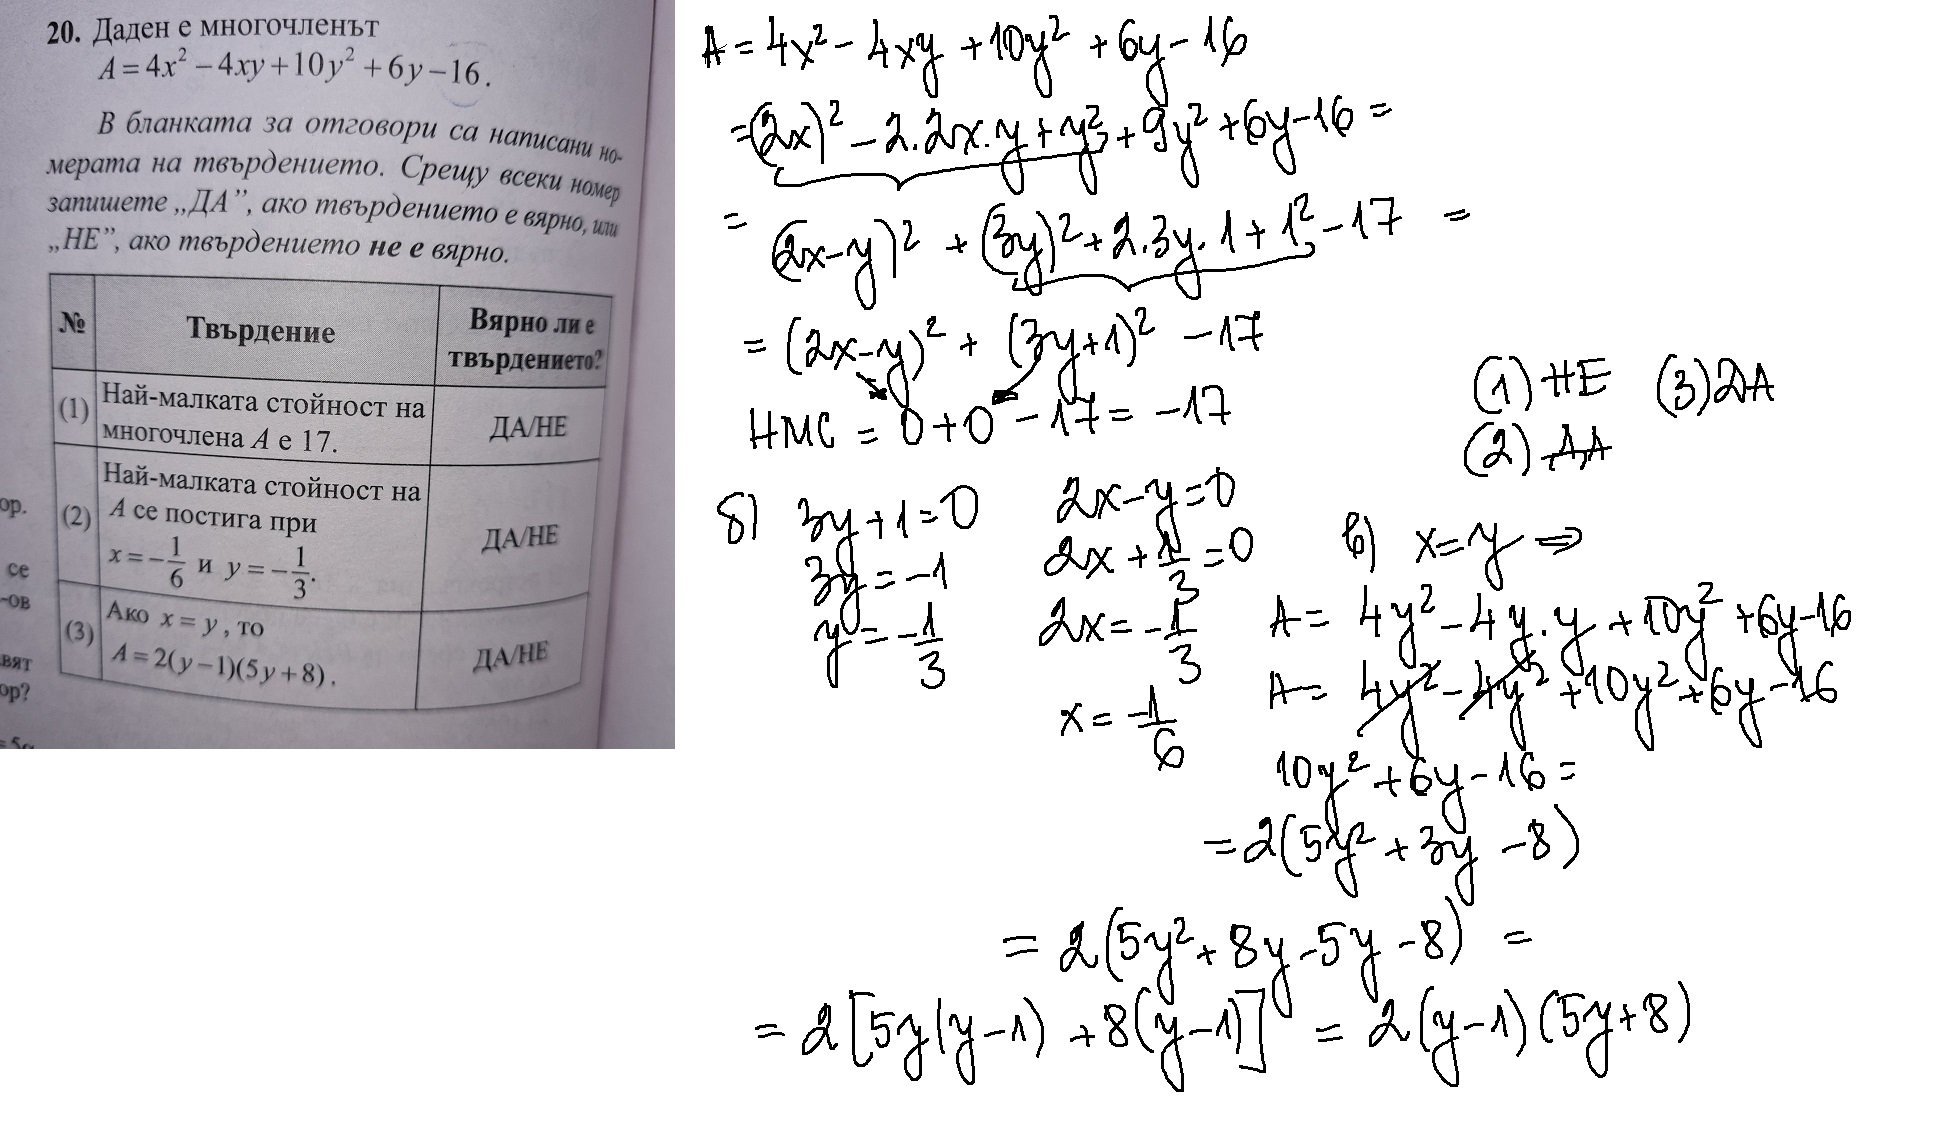 20. Даден е многочленът
A = 4x² − 4xy + 10y² + 6y − 16.
В бланката за отговори са написани но-
мерата на твърдението. Срещу всеки номер
запишете „ДА”, ако твърдението е вярно, или
„НЕ”, ако твърдението не е вярно.
№ Твърдение Вярно ли е твърдението?
(1) Най-малката стойност на
многочлена A е 17. ДА/НЕ
(2) Най-малката стойност на
A се постига при
x = −1/6 и y = −1/3. ДА/НЕ
(3) Ако x = y, то
A = 2(y − 1)(5y + 8). ДА/НЕ
ор.
се
-ов
вят
ор?
A = 4x² − 4xy + 10y² + 6y − 16
= (2x)² − 2.2x.y + y² + 9y² + 6y − 16 =
= (2x−y)² + (3y)² + 2.3y.1 + 1² − 17 =
= (2x−y)² + (3y+1)² − 17
НМС = 0 + 0 − 17 = −17
(1) НЕ (3) ДА
(2) ДА
б) 3y + 1 = 0
3y = −1
y = −1/3
2x − y = 0
2x + 1/3 = 0
2x = −1/3
x = −1/6
в) x = y ⇒
A = 4y² − 4y.y + 10y² + 6y − 16
A = 4y² − 4y² + 10y² + 6y − 16
10y² + 6y − 16 =
= 2(5y² + 3y − 8)
= 2(5y² + 8y − 5y − 8) =
= 2[5y(y−1) + 8(y−1)] = 2(y−1)(5y+8)